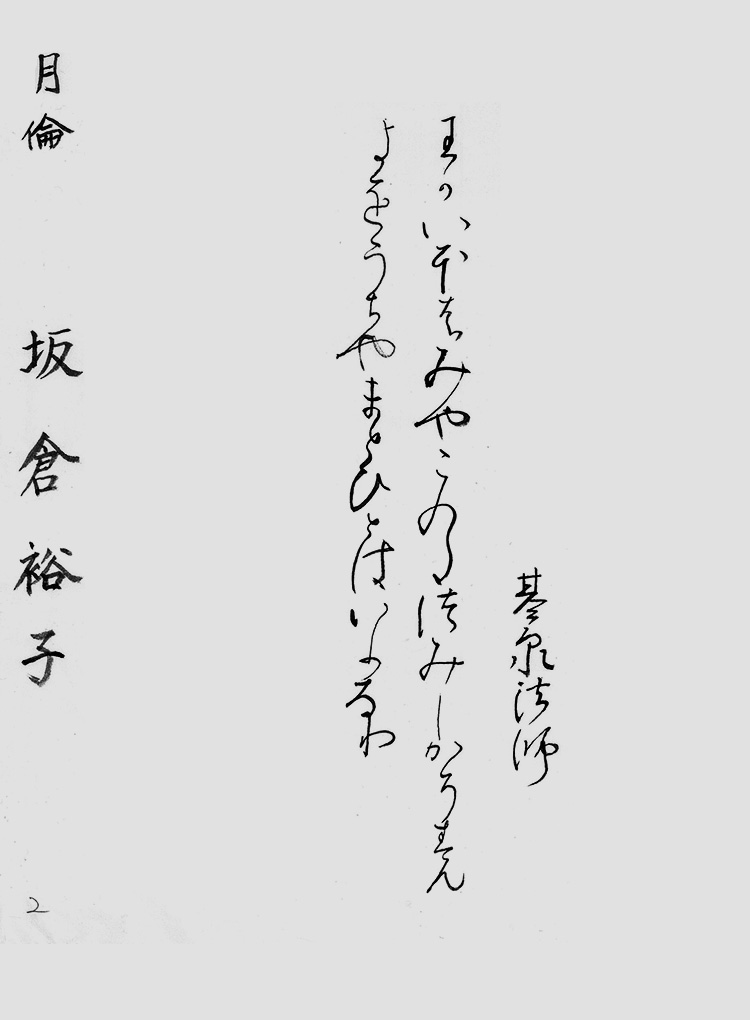 基泉法師
わかいほはみやこのたつみしかそすむ
よをうちやまとひとはいふなり
月倫 坂倉裕子
2